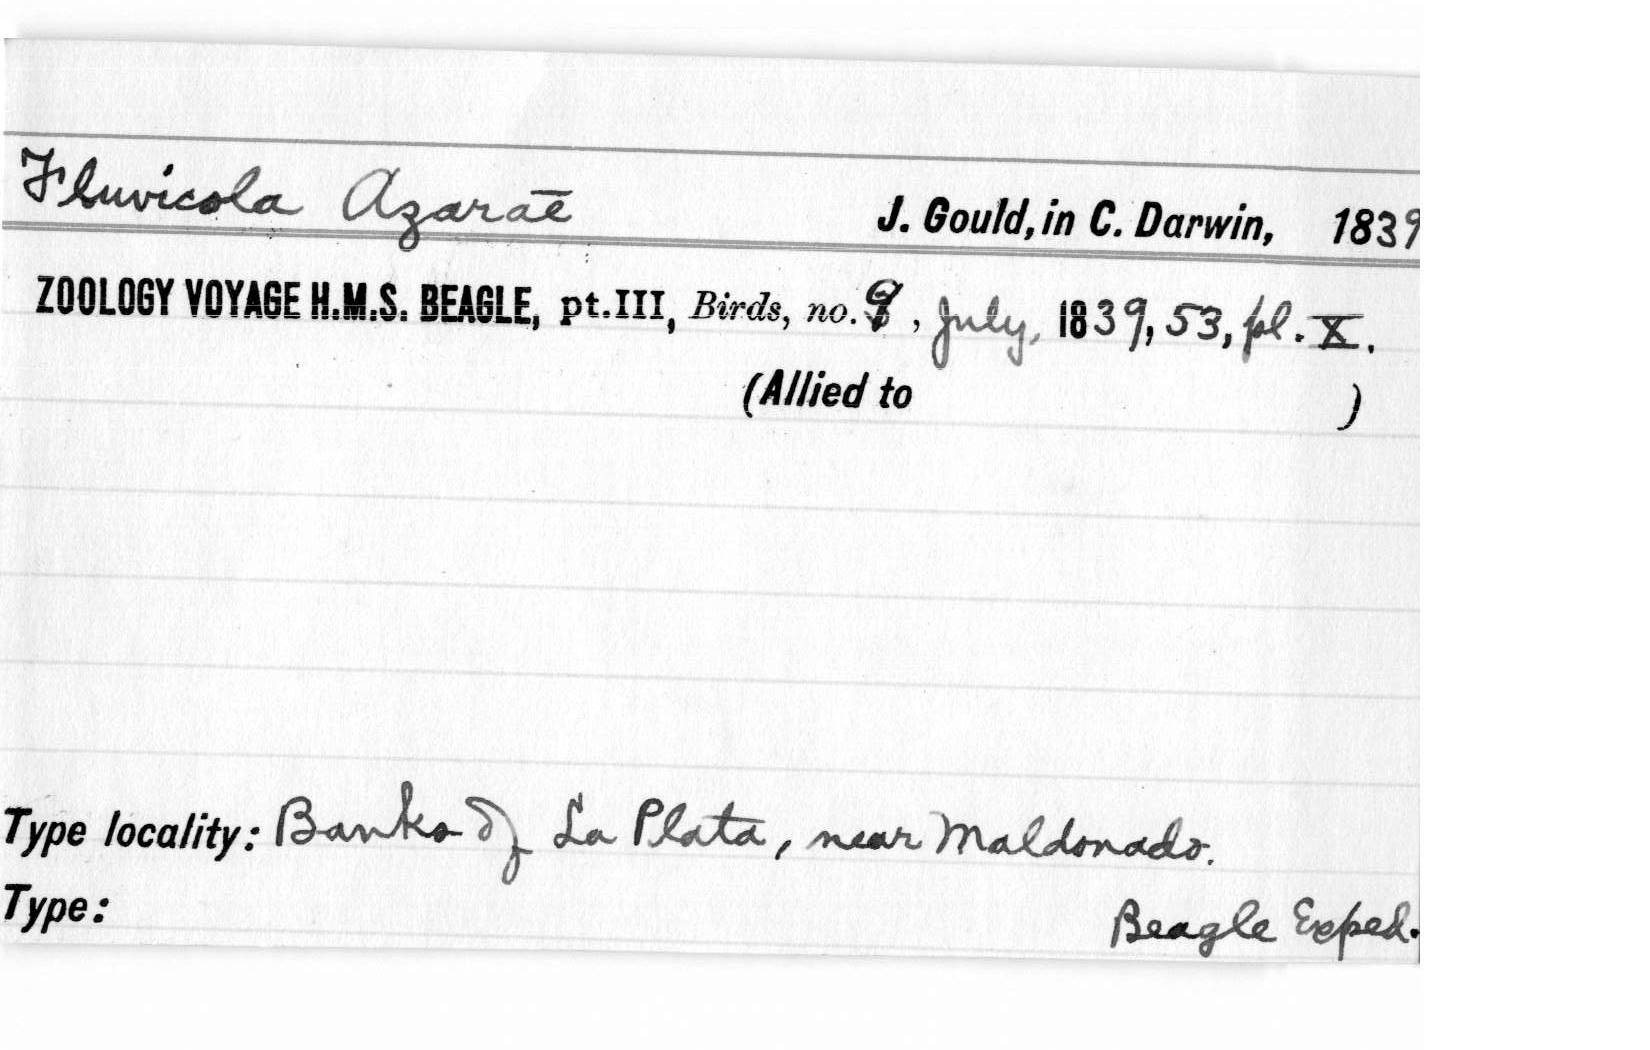 Fluvicola Azarae J. Gould, in C. Darwin, 1839
ZOOLOGY VOYAGE H.M.S. BEAGLE, pt.III, Birds, no. , July, 1839, 53, pl. X.
(Allied to )
Type locality: Banks of La Plata, near Maldonado.
Type: Beagle Exped.